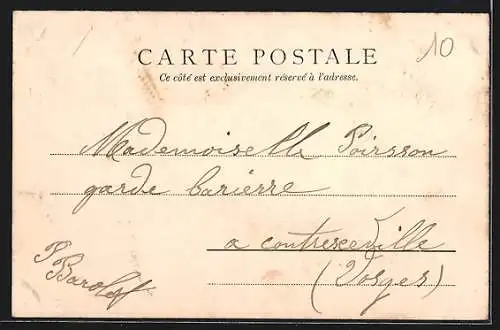 CARTE POSTALE
10
Ce côté est exclusivement réservé à l'adresse.
Mademoiselle Poirsson
garde barierre
a contrexeville
(Vosges)
P